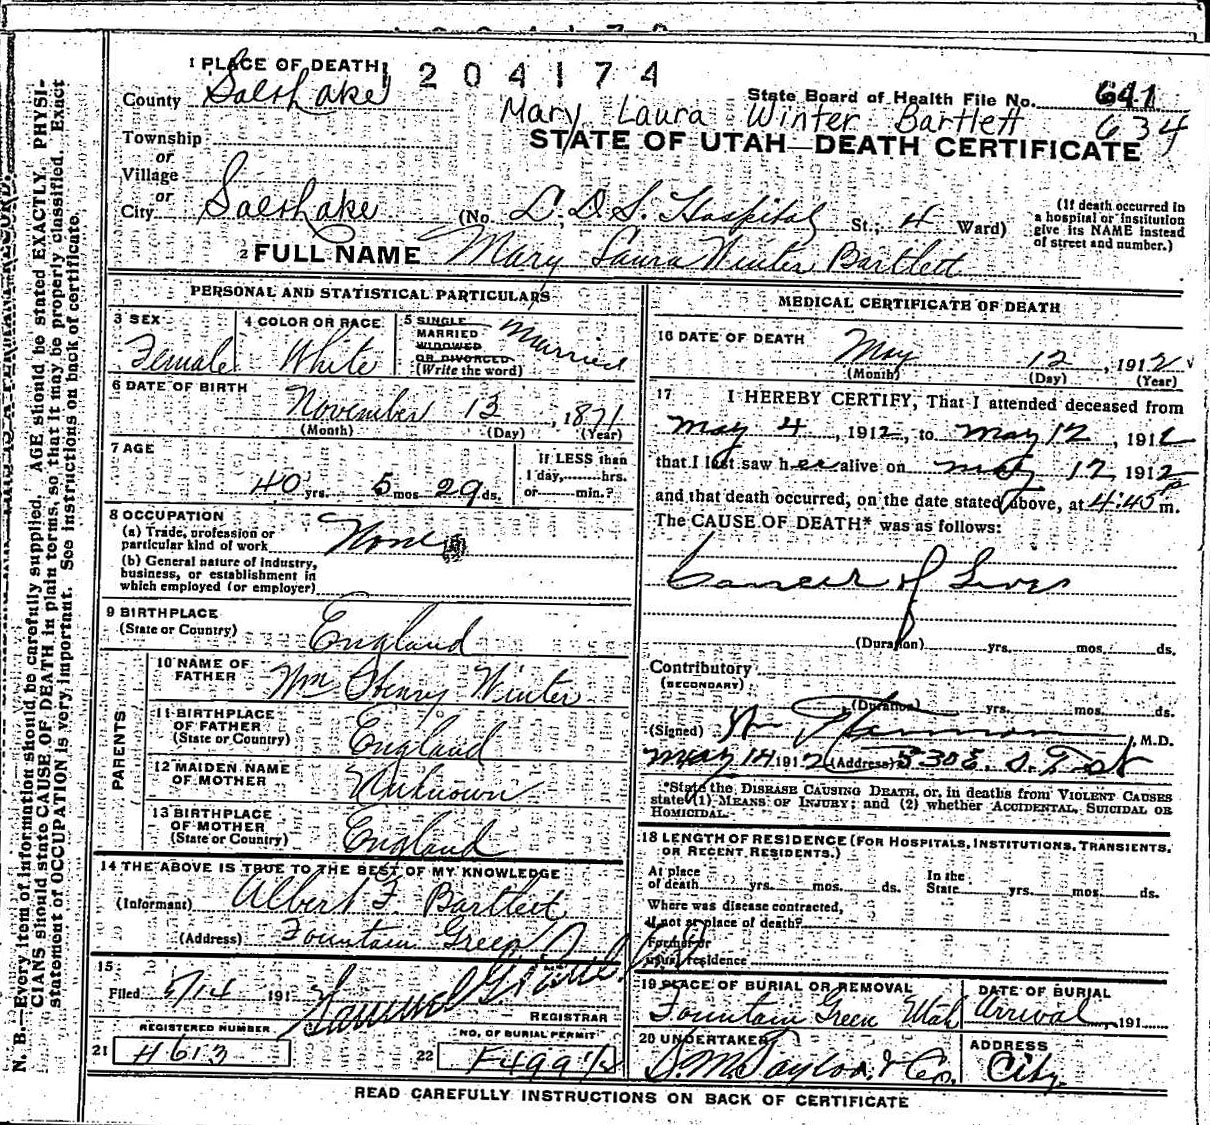 1 PLACE OF DEATH
1204174
County Salt Lake
State Board of Health File No. 641
Mary Laura Winter Bartlett 634
Township
or
Village
or
STATE OF UTAH—DEATH CERTIFICATE
City Salt Lake (No. L. D. S. Hospital St.; 4 Ward)
(If death occurred in a hospital or institution give its NAME instead of street and number.)
2 FULL NAME Mary Laura Winter Bartlett
PERSONAL AND STATISTICAL PARTICULARS
3 SEX Female
4 COLOR OR RACE White
5 SINGLE MARRIED WIDOWED OR DIVORCED (Write the word) Married
6 DATE OF BIRTH
November 13, 1871
(Month) (Day) (Year)
7 AGE
40 yrs. 5 mos 29 ds.
If LESS than 1 day, hrs. or min.?
8 OCCUPATION
(a) Trade, profession or particular kind of work None
(b) General nature of industry, business, or establishment in which employed (or employer)
9 BIRTHPLACE
(State or Country) England
PARENTS
10 NAME OF FATHER Wm Henry Winter
11 BIRTHPLACE OF FATHER (State or Country) England
12 MAIDEN NAME OF MOTHER Unknown
13 BIRTHPLACE OF MOTHER (State or Country) England
14 THE ABOVE IS TRUE TO THE BEST OF MY KNOWLEDGE
(Informant) Albert F. Bartlett
(Address) Fountain Green
15
Filed 5/14 191
REGISTRAR
REGISTERED NUMBER
21 H613
NO. OF BURIAL PERMIT
22
MEDICAL CERTIFICATE OF DEATH
16 DATE OF DEATH
May 12, 1912
(Month) (Day) (Year)
17 I HEREBY CERTIFY, That I attended deceased from
May 4, 1912, to May 12, 1912
that I last saw her alive on May 12 1912
and that death occurred, on the date stated above, at 4:45 p m.
The CAUSE OF DEATH* was as follows:
Cancer of Liver
(Duration) yrs. mos. ds.
Contributory
(SECONDARY)
(Duration) yrs. mos. ds.
(Signed) M.D.
May 14 1912 (Address)
*State the DISEASE CAUSING DEATH, or, in deaths from VIOLENT CAUSES state (1) MEANS OF INJURY; and (2) whether ACCIDENTAL, SUICIDAL OR HOMICIDAL.
18 LENGTH OF RESIDENCE (FOR HOSPITALS, INSTITUTIONS, TRANSIENTS, OR RECENT RESIDENTS.)
At place of death yrs. mos. ds. In the State yrs. mos. ds.
Where was disease contracted,
if not at place of death?
Former or
usual residence
19 PLACE OF BURIAL OR REMOVAL
Fountain Green Utah
DATE OF BURIAL
Arrival 191
20 UNDERTAKER
S. M. Taylor & Co.
ADDRESS
City
READ CAREFULLY INSTRUCTIONS ON BACK OF CERTIFICATE
N. B.—Every item of information should be carefully supplied. AGE should be stated EXACTLY. PHYSI-
CIANS should state CAUSE OF DEATH in plain terms, so that it may be properly classified. Exact
statement of OCCUPATION is very important. See instructions on back of certificate.